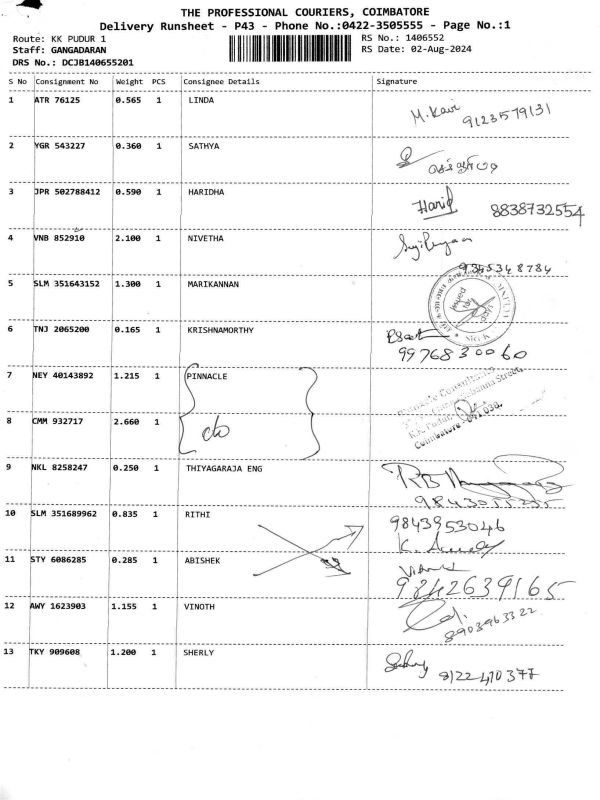 THE PROFESSIONAL COURIERS, COIMBATORE
Delivery Runsheet - P43 - Phone No.:0422-3505555 - Page No.:1
Route: KK PUDUR 1
RS No.: 1406552
Staff: GANGADARAN
RS Date: 02-Aug-2024
DRS No.: DCJB140655201
S No Consignment No Weight PCS Consignee Details Signature
1 ATR 76125 0.565 1 LINDA
M.Kavi
9123579131
2 YGR 543227 0.360 1 SATHYA
3 JPR 502788412 0.590 1 HARIDHA
Harid 8838732554
4 VNB 852910 2.100 1 NIVETHA
9365348784
5 SLM 351643152 1.300 1 MARIKANNAN
6 TNJ 2065200 0.165 1 KRISHNAMORTHY
9976830060
7 NEY 40143892 1.215 1 PINNACLE
Pinnacle Consultants
Street,
K.K. Pudur,
Coimbatore - 641 038.
8 CMM 932717 2.660 1
do
9 NKL 8258247 0.250 1 THIYAGARAJA ENG
9843055255
10 SLM 351689962 0.835 1 RITHI
9843953046
11 STY 6086285 0.285 1 ABISHEK
9842639165
12 AWY 1623903 1.155 1 VINOTH
8903963322
13 TKY 909608 1.200 1 SHERLY
8122410377